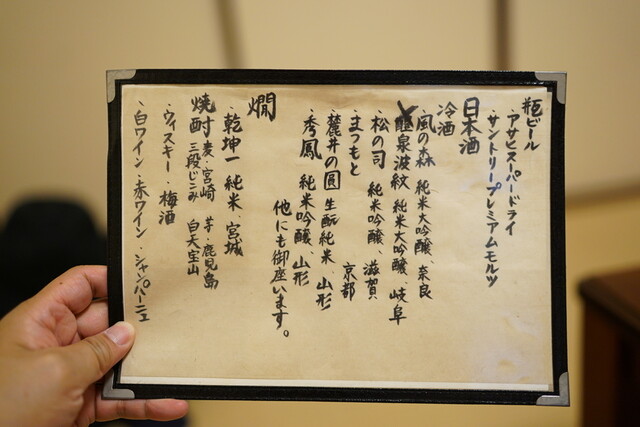 瓶ビール
・アサヒスーパードライ
・サントリープレミアムモルツ
日本酒
冷酒
・風の森 純米大吟醸、奈良
醴泉波紋 純米大吟醸、岐阜
・松の司 純米吟醸、滋賀
・まつもと 京都
・麓井の圓 生酛純米、山形
・秀鳳 純米吟醸、山形
他にも御座います。
燗
・乾坤一 純米、宮城
焼酎 麦・宮崎 芋・鹿児島
三段じこみ 白天宝山
・ウィスキー・梅酒
・白ワイン・赤ワイン・シャンパーニュ